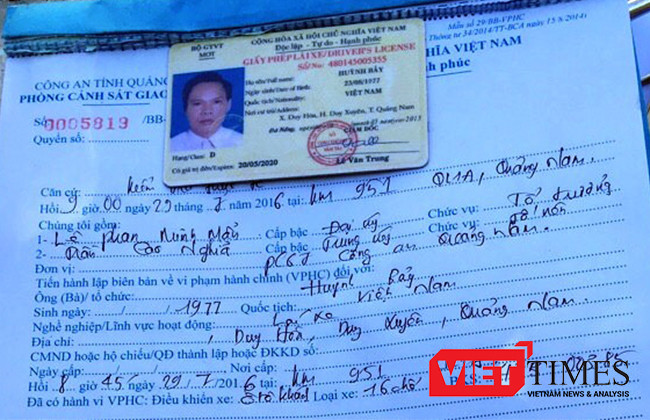 Mẫu số 29/BB-VPHC
Thông tư 34/2014/TT-BCA ngày 15/8/2014
CÔNG AN TỈNH QUẢNG
PHÒNG CẢNH SÁT GIAO
NGHĨA VIỆT NAM
h phúc
Số 0005819 /BB-
Quyển số:
BỘ GTVT
MOT
CỘNG HÒA XÃ HỘI CHỦ NGHĨA VIỆT NAM
Độc lập - Tự do - Hạnh phúc
GIẤY PHÉP LÁI XE/DRIVER'S LICENSE
Số/No: 480145005355
Họ tên/Full name: HUỲNH BẢY
Ngày sinh/Date of Birth: 23/08/1977
Quốc tịch/Nationality:
Nơi cư trú/Address:
X. Duy Hòa, H. Duy Xuyên, T. Quảng Nam
GIÁM ĐỐC
Hạng/Class: D
Có giá trị đến/Expires: 20/05/2020
Lê Văn Trung
Căn cứ:
Hồi 9 giờ 00 ngày 29 tháng 7 năm 2016 tại: km 951 QL1A, Quảng Nam.
Chúng tôi gồm:
1- Lê Phan Minh Mẫn Cấp bậc Đại úy Chức vụ: Tổ trưởng
2- Trần Cao Nghĩa Cấp bậc Trung úy Chức vụ: Tổ viên
Đơn vị: PC67 Công an Quảng Nam.
Tiến hành lập biên bản về vi phạm hành chính (VPHC) đối với:
Ông (Bà)/ tổ chức: Huỳnh Bảy
Sinh ngày: / /1977 Quốc tịch: Việt Nam
Nghề nghiệp/Lĩnh vực hoạt động: Lái xe
Địa chỉ: , Duy Hòa, Duy Xuyên, Quảng Nam.
CMND hoặc hộ chiếu/QĐ thành lập hoặc ĐKKD số:
Ngày cấp: / / Nơi cấp:
Hồi 8 giờ 45 29/7/2016 tại: km 951
Đã có hành vi VPHC: Điều khiển xe: Ôtô khách Loại xe: 16 chỗ BKS:
VIETTIMES
VIETNAM NEWS & ANALYSIS